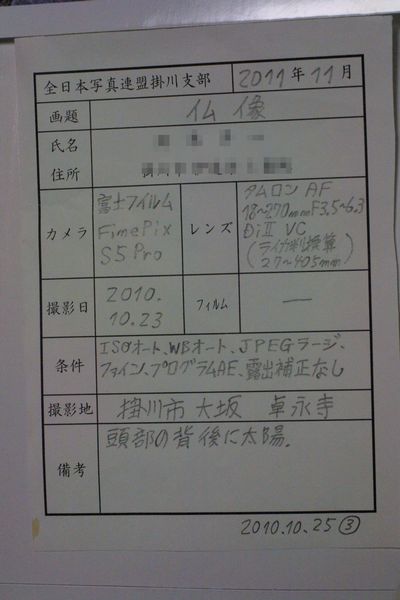 全日本写真連盟掛川支部 2011年11月
画題 仏像
氏名
住所
カメラ 富士フイルム
FinePix
S5 Pro
レンズ タムロン AF
18〜270mmF3.5〜6.3
DiⅡ VC
(ライカ判換算
27〜405mm)
撮影日 2010.
10.23
フィルム —
条件 ISOオート、WBオート、JPEGラージ、
ファイン、プログラムAE、露出補正なし
撮影地 掛川市大坂 卓永寺
備考 頭部の背後に太陽.
2010.10.25 ③